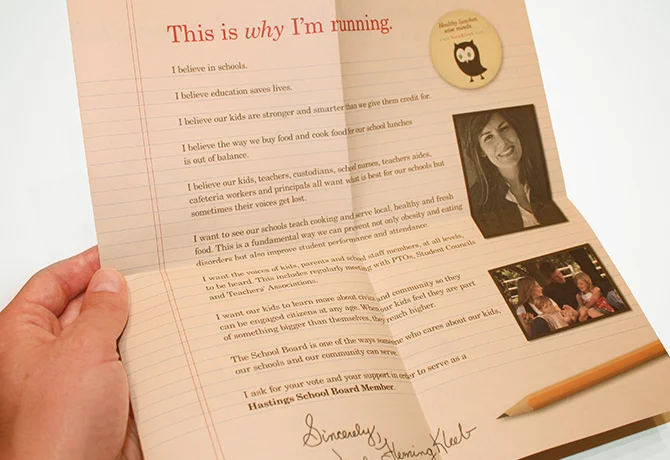 This is why I'm running.
Healthy lunches,
wise minds.
I believe in schools.
I believe education saves lives.
I believe our kids are stronger and smarter than we give them credit for.
I believe the way we buy food and cook food for our school lunches
is out of balance.
I believe our kids, teachers, custodians, school nurses, teachers aides,
cafeteria workers and principals all want what is best for our schools but
sometimes their voices get lost.
I want to see our schools teach cooking and serve local, healthy and fresh
food. This is a fundamental way we can prevent not only obesity and eating
disorders but also improve student performance and attendance.
I want the voices of kids, parents and school staff members, at all levels,
to be heard. This includes regularly meeting with PTOs, Student Councils
and Teachers' Associations.
I want our kids to learn more about civics and community so they
can be engaged citizens at any age. When our kids feel they are part
of something bigger than themselves, they reach higher.
The School Board is one of the ways someone who cares about our kids,
our schools and our community can serve.
I ask for your vote and your support in order to serve as a
Hastings School Board Member.
Sincerely,
Fleming Kleeb